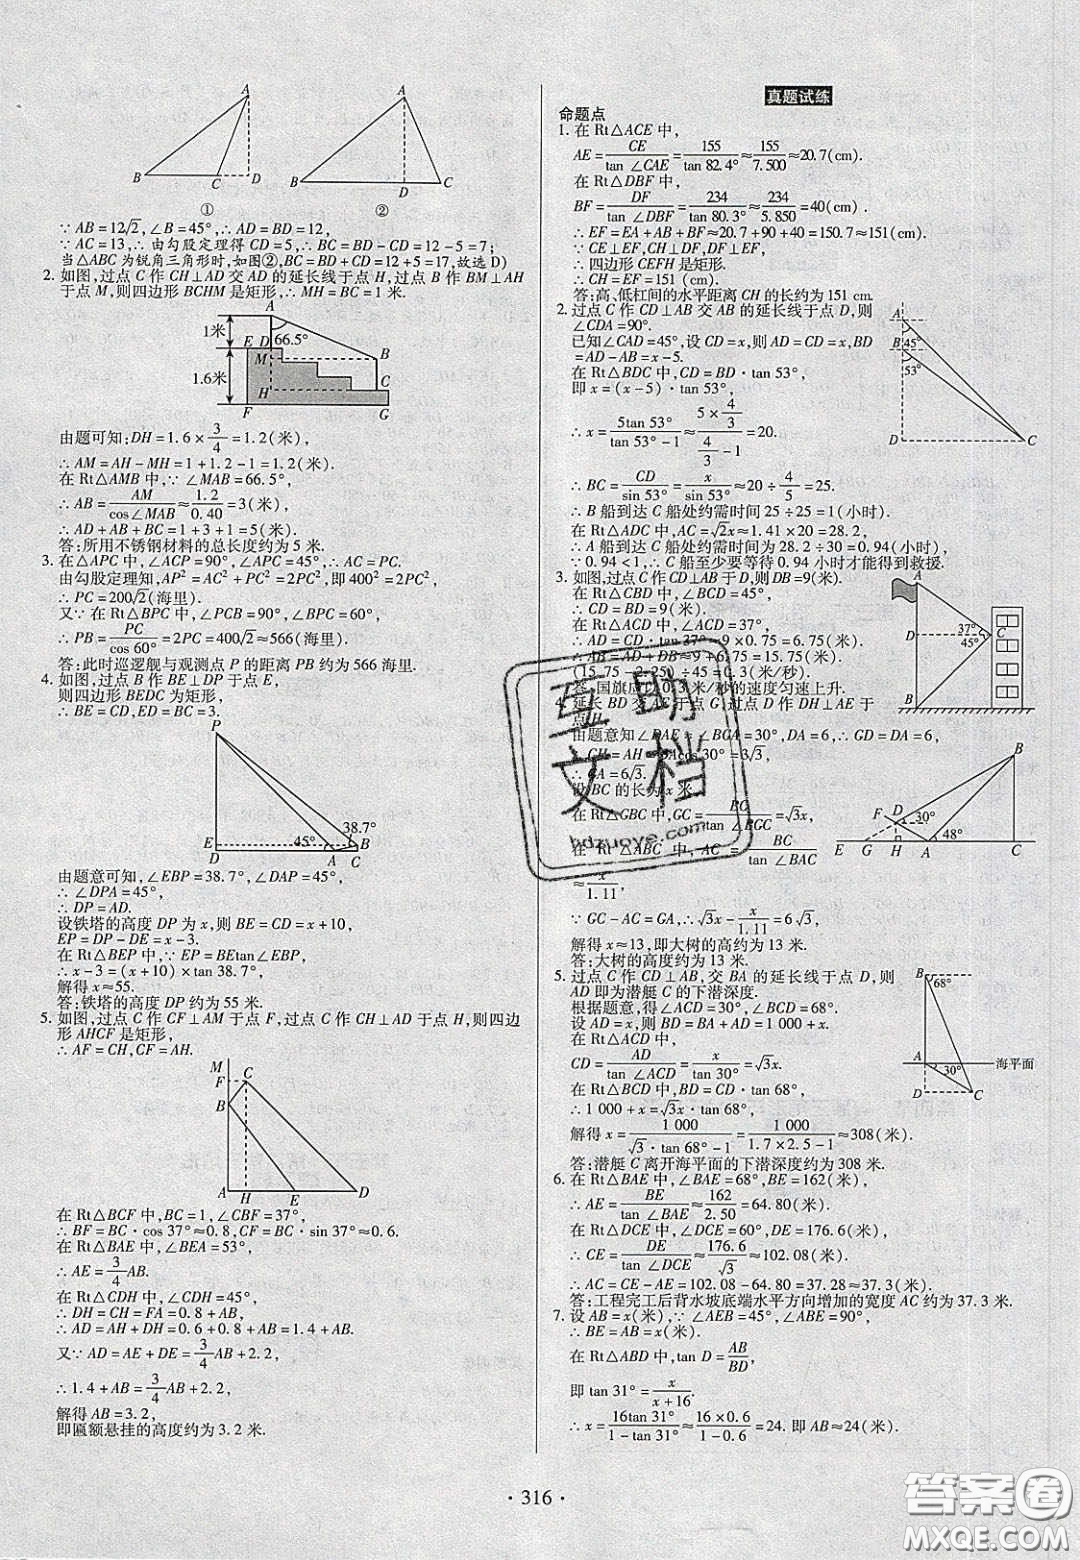 A
B
C
D
①
A
B
D
C
②
∵ AB=12√2,∠B=45°,∴ AD=BD=12,
∵ AC=13,∴ 由勾股定理得 CD=5,∴ BC=BD-CD=12-5=7;
当△ABC为锐角三角形时,如图②,BC=BD+CD=12+5=17,故选 D)
2. 如图,过点 C 作 CH⊥AD 交 AD 的延长线于点 H,过点 B 作 BM⊥AH
于点 M,则四边形 BCHM 是矩形,∴ MH=BC=1 米.
A
1米
66.5°
E D
M
B
1.6米
H
C
F
G
由题可知:DH=1.6×3/4=1.2(米),
∴ AM=AH-MH=1+1.2-1=1.2(米).
在 Rt△AMB 中,∵ ∠MAB=66.5°,
∴ AB=AM/cos∠MAB≈1.2/0.40=3(米),
∴ AD+AB+BC=1+3+1=5(米).
答:所用不锈钢材料的总长度约为 5 米.
3. 在△APC 中,∠ACP=90°,∠APC=45°,∴ AC=PC.
由勾股定理知,AP²=AC²+PC²=2PC²,即400²=2PC²,
∴ PC=200√2(海里).
又∵ 在 Rt△BPC 中,∠PCB=90°,∠BPC=60°,
∴ PB=PC/cos60°=2PC=400√2≈566(海里).
答:此时巡逻舰与观测点 P 的距离 PB 约为 566 海里.
4. 如图,过点 B 作 BE⊥DP 于点 E,
则四边形 BEDC 为矩形,
∴ BE=CD,ED=BC=3.
P
38.7°
E
45°
B
D
A C
由题意可知,∠EBP=38.7°,∠DAP=45°,
∴ ∠DPA=45°,
∴ DP=AD.
设铁塔的高度 DP 为 x,则 BE=CD=x+10,
EP=DP-DE=x-3.
在 Rt△BEP 中,∵ EP=BEtan∠EBP,
∴ x-3=(x+10)×tan 38.7°,
解得 x≈55.
答:铁塔的高度 DP 约为 55 米.
5. 如图,过点 C 作 CF⊥AM 于点 F,过点 C 作 CH⊥AD 于点 H,则四边
形 AHCF 是矩形,
∴ AF=CH,CF=AH.
M
F
C
B
A
H
E
D
在 Rt△BCF 中,BC=1,∠CBF=37°,
∴ BF=BC·cos 37°≈0.8,CF=BC·sin 37°≈0.6.
在 Rt△BAE 中,∠BEA=53°,
∴ AE=3/4AB.
在 Rt△CDH 中,∠CDH=45°,
∴ DH=CH=FA=0.8+AB,
∴ AD=AH+DH=0.6+0.8+AB=1.4+AB.
又∵ AD=AE+DE=3/4AB+2.2,
∴ 1.4+AB=3/4AB+2.2,
解得 AB=3.2,
即匾额悬挂的高度约为 3.2 米.
真题试练
命题点
1. 在 Rt△ACE 中,
AE=CE/tan∠CAE=155/tan 82.4°≈155/7.500≈20.7(cm).
在 Rt△DBF 中,
BF=DF/tan∠DBF=234/tan 80.3°≈234/5.850=40(cm).
∴ EF=EA+AB+BF≈20.7+90+40=150.7≈151(cm).
∵ CE⊥EF,CH⊥DF,DF⊥EF,
∴ 四边形 CEFH 是矩形.
∴ CH=EF=151(cm).
答:高、低杠间的水平距离 CH 的长约为 151 cm.
2. 过点 C 作 CD⊥AB 交 AB 的延长线于点 D,则
∠CDA=90°.
已知∠CAD=45°,设 CD=x,则 AD=CD=x,BD
=AD-AB=x-5.
在 Rt△BDC 中,CD=BD·tan 53°,
即 x=(x-5)·tan 53°,
∴ x=5tan 53°/(tan 53°-1)≈(5×4/3)/(4/3-1)=20.
∴ BC=CD/sin 53°=x/sin 53°≈20÷4/5=25.
∴ B 船到达 C 船处约需时间 25÷25=1(小时).
在 Rt△ADC 中,AC=√2x≈1.41×20=28.2,
∴ A 船到达 C 船处约需时间为 28.2÷30=0.94(小时).
∵ 0.94<1,∴ C 船至少要等待 0.94 小时才能得到救援.
A
B
45°
53°
D
C
3. 如图,过点 C 作CD⊥AB 于 D,则 DB=9(米).
在 Rt△CBD 中,∠BCD=45°,
∴ CD=BD=9(米).
在 Rt△ACD 中,∠ACD=37°,
∴ AD=CD·tan 37°≈9×0.75=6.75(米).
∴ AB=AD+DB≈9+6.75=15.75(米).
(15.75-2.25)÷45=0.3(米/秒).
答:国旗应以0.3 米/秒的速度匀速上升.
A
D
37°
45°
C
B
4. 延长 BD 交 AE 于点 G,过点 D 作 DH⊥AE 于
点 H.
由题意知∠DAE=∠BGA=30°,DA=6,∴ GD=DA=6,
∴ GH=AH=DAcos 30°=3√3,
∴ GA=6√3.
设 BC 的长为 x 米.
在 Rt△GBC 中,GC=BC/tan∠BGC=√3x,
在 Rt△ABC 中,AC=BC/tan∠BAC
≈x/1.11,
∵ GC-AC=GA,∴ √3x-x/1.11=6√3,
解得 x≈13,即大树的高约为 13 米.
答:大树的高度约为 13 米.
B
F
D
30°
48°
E
G
H
A
C
5. 过点 C 作 CD⊥AB,交 BA 的延长线于点 D,则
AD 即为潜艇 C 的下潜深度.
根据题意,得∠ACD=30°,∠BCD=68°.
设 AD=x,则 BD=BA+AD=1 000+x.
在 Rt△ACD 中,
CD=AD/tan∠ACD=x/tan 30°=√3x.
在 Rt△BCD 中,BD=CD·tan 68°,
∴ 1 000+x=√3x·tan 68°,
解得 x=1 000/(√3·tan 68°-1)≈1 000/(1.7×2.5-1)≈308(米).
答:潜艇 C 离开海平面的下潜深度约为 308 米.
B
68°
A
海平面
30°
D
C
6. 在 Rt△BAE 中,∠BAE=68°,BE=162(米),
∴ AE=BE/tan∠BAE≈162/2.50=64.80(米).
在 Rt△DCE 中,∠DCE=60°,DE=176.6(米),
∴ CE=DE/tan∠DCE≈176.6/√3≈102.08(米).
∴ AC=CE-AE≈102.08-64.80=37.28≈37.3(米).
答:工程完工后背水坡底端水平方向增加的宽度 AC 约为 37.3 米.
7. 设 AB=x(米).∵ ∠AEB=45°,∠ABE=90°,
∴ BE=AB=x(米).
在 Rt△ABD 中,tan D=AB/BD,
即 tan 31°=x/(x+16).
∴ x=16tan 31°/(1-tan 31°)≈(16×0.6)/(1-0.6)=24. 即 AB≈24(米).
互助
文档
bdzuoye.com
· 316 ·
答案圈
MXQE.COM